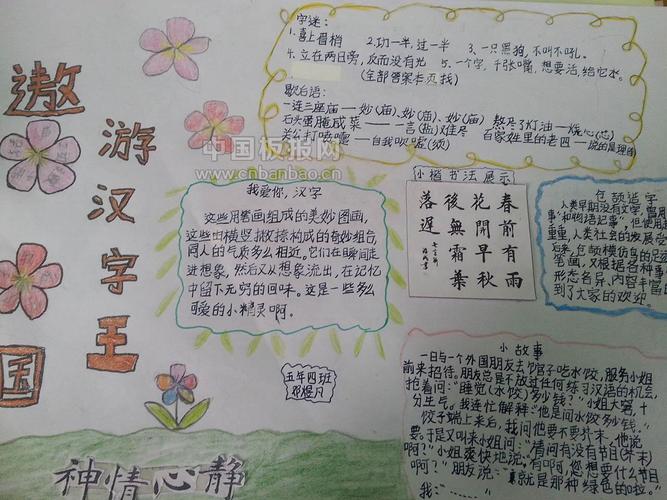 遨
游
汉
字
王
国
字迷:
1.喜上眉梢 2.功一半,过一半 3、一只黑狗,不叫不吼。
4.立在两日旁,反而没有光 5.一个字,千张嘴,想要活,给它水。
(全部答案本页找)
歇后语:
一连三座庙——妙(庙)、妙(庙)、妙(庙)
熬尽了灯油——烧心(芯)
石头蛋腌咸菜——一言(盐)难尽
百家姓里的老四——说的是理
关公打喷嚏——自我吹嘘(须)
中国板报网
www.cnbanbao.cn
我爱你,汉字
这些用笔画组成的美妙图画,
这些由横竖撇捺构成的奇妙组合,
同人的气质多么相近。它们在瞬间走
进想象,然后又从想象流出,在记忆
中留下无穷的回味。这是一些多么
可爱的小精灵啊。
小楷书法展示
春前有雨
花開早秋
後無霜葉
落遲
仓颉造字
人类早期没有文字,曾用
事"和"物语记事",但使用
重重,人类社会的发展
后来,仓颉模仿鸟的足迹
笔画,又根据各种事
形态各异、内容丰富的
到了大家的欢迎
五年四班
小故事
一日与一个外国朋友去饺子馆吃水饺,服务小姐
前来招待。朋友总是不放过任何练习汉语的机会,
抢着问:"睡觉(水饺)多少钱?"小姐大窘,十
分生气。我连忙解释"他是问水饺多少钱。"
饺子端上来后,我问他要不要芥末,他说
要。于是又叫来小姐问:"请问有没有节目(芥末)
啊?"小姐爽快地说:有啊,您想要什么节目
啊?"朋友说:"就是那种绿色的啦。"
我:……
神情心静